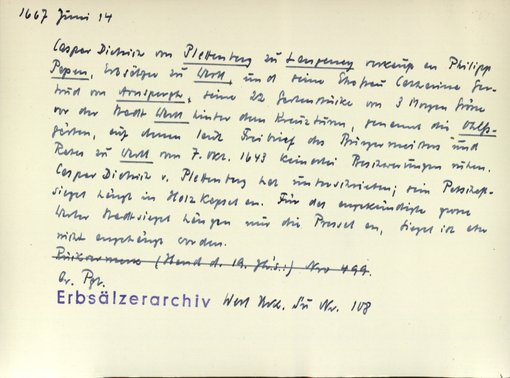 1667 Juni 14
Casper Dietrich von Plettenberg zu Langeney verkauft an Philipp
Papen, Erbsälzer zu Werl, und seine Ehefrau Catharina Ger-
trud von Arnsbergh, seine 22 Gartenstücke von 3 Morgen Größe
vor der Stadt Werl hinter dem Kreuzturm, genannt die
gärten, auf denen laut Freibrief des Bürgermeisters und
Rates zu Werl vom 7. Okt. 1643 keinerlei Beschwerungen ruhen.
Casper Dietrich v. Plettenberg hat unterschrieben; sein Petschaft-
siegel hängt in Holzkapsel an. Für das angekündigte große
Werler Stadtsiegel hängen nur die Pressel an, Siegel ist aber
nicht angehängt worden.
Rückvermerk (Hand d. 19. Jhs.:) Nro 499.
Or. Pgt.
Erbsälzerarchiv Werl Urk. Nr. 108